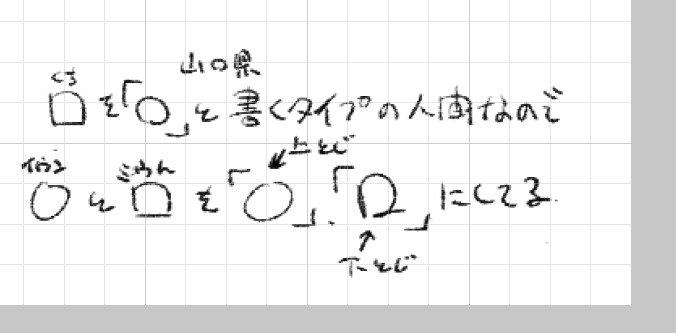 山口県
くち
口を「〇」と書くタイプの人間なので
上とじ
〇と口を「〇」、「口」にしてる.
下とじ